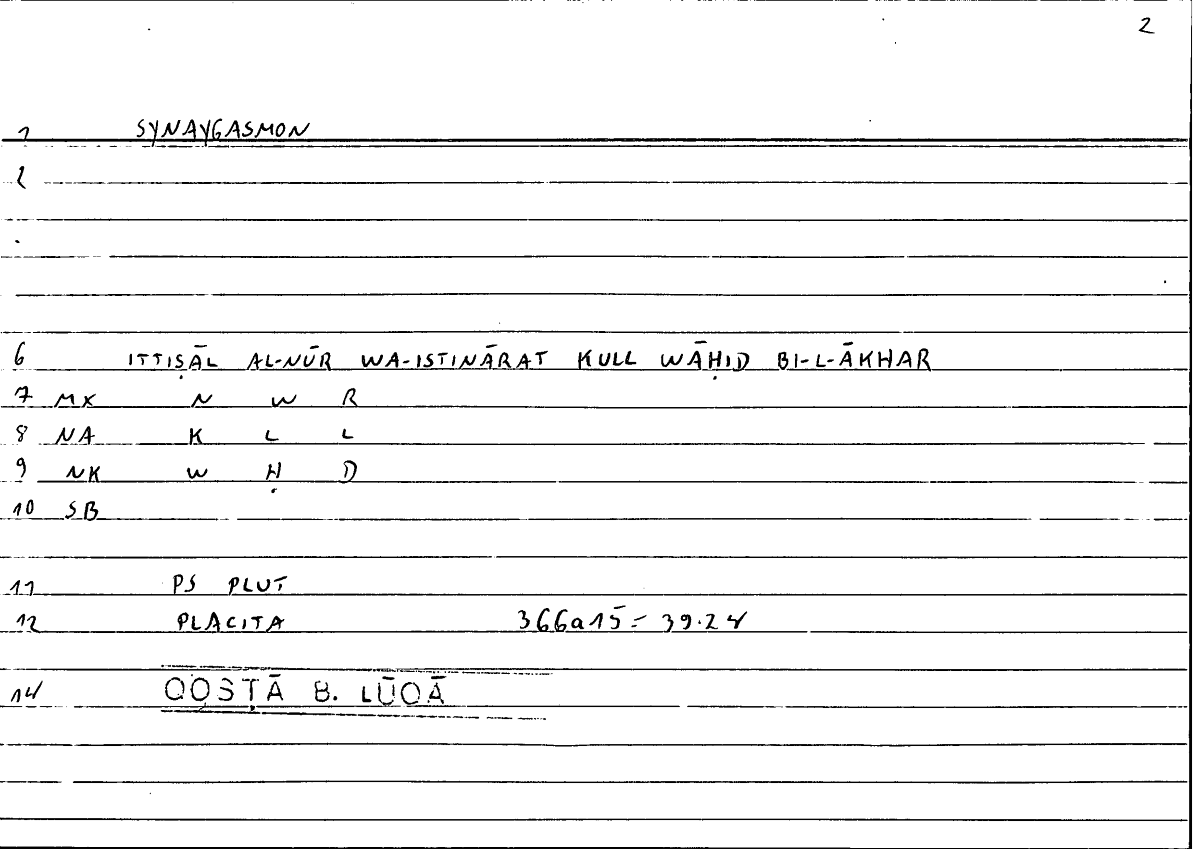 2
1 SYNAYGASMON
2
6 ITTIṢĀL AL-NŪR WA-ISTINĀRAT KULL WĀḤID BI-L-ĀKHAR
7 MX N W R
8 NA K L L
9 NK W Ḥ D
10 SB
11 PS PLUT
12 PLACITA 366a15 = 39.24
14 QOSṬĀ B. LŪQĀ